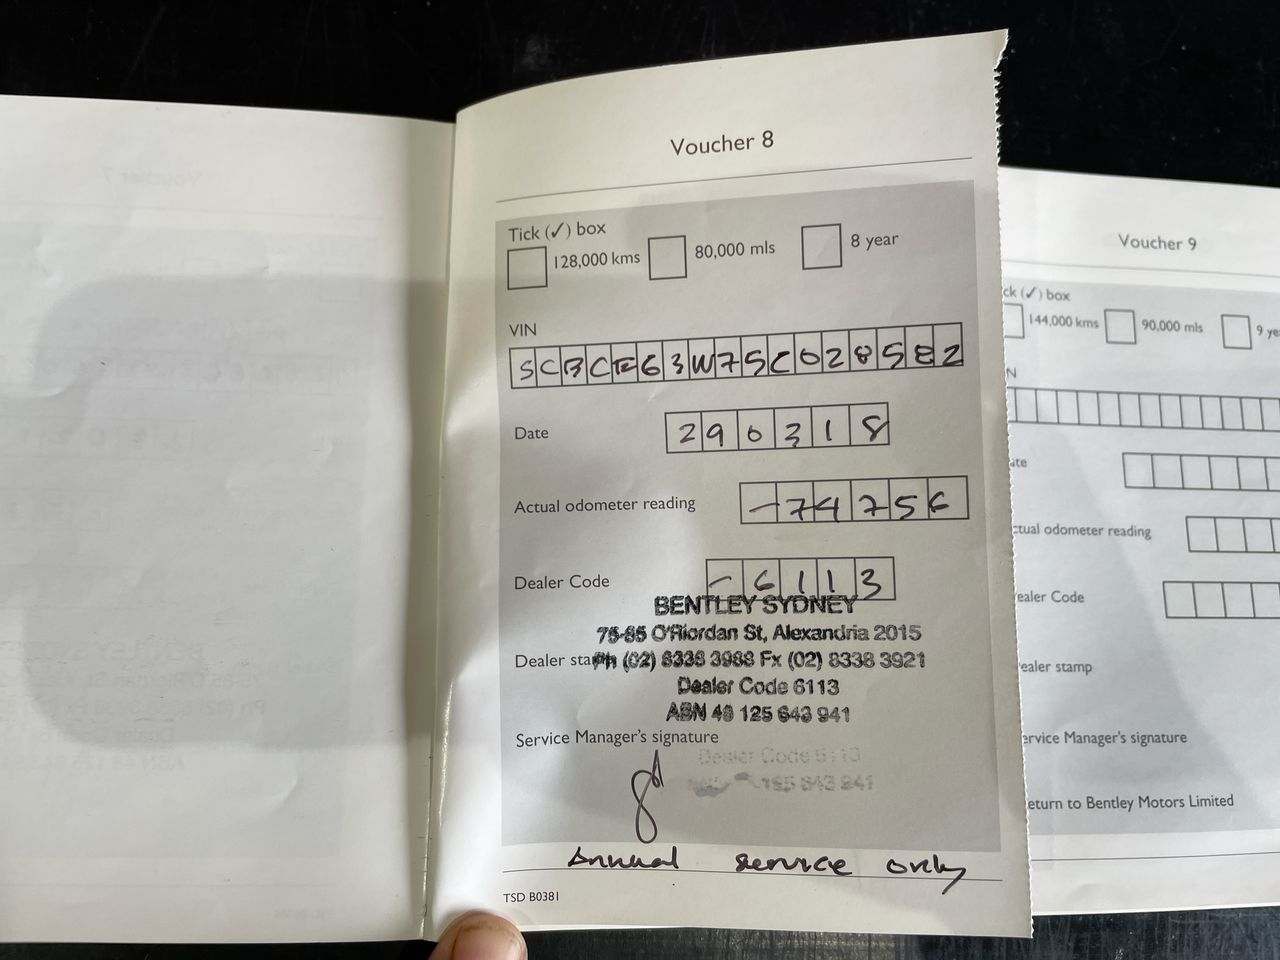 Voucher 8
Tick (✓) box
128,000 kms 80,000 mls 8 year
VIN
SCBCE63W75C028582
Date 290318
Actual odometer reading -74756
Dealer Code -6113
BENTLEY SYDNEY
75-85 O'Riordan St, Alexandria 2015
Dealer stamp Ph (02) 8338 3988 Fx (02) 8338 3921
Dealer Code 6113
ABN 48 125 643 941
Service Manager's signature
Dealer Code 6113
125 643 941
Annual service only
TSD B0381
Voucher 9
ck (✓) box
144,000 kms 90,000 mls 9 ye
N
ate
ctual odometer reading
ealer Code
ealer stamp
ervice Manager's signature
eturn to Bentley Motors Limited